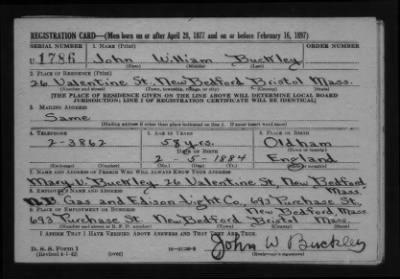 REGISTRATION CARD—(Men born on or after April 28, 1877 and on or before February 16, 1897)
SERIAL NUMBER 1. NAME (Print) ORDER NUMBER
U 1786 John William Buckley
(First) (Middle) (Last)
2. PLACE OF RESIDENCE (Print)
26 Valentine St. New Bedford Bristol Mass.
(Number and street) (Town, township, village, or city) (County) (State)
[THE PLACE OF RESIDENCE GIVEN ON THE LINE ABOVE WILL DETERMINE LOCAL BOARD
JURISDICTION; LINE 2 OF REGISTRATION CERTIFICATE WILL BE IDENTICAL]
3. MAILING ADDRESS
Same
(Mailing address if other than place indicated on line 2. If same insert word same)
4. TELEPHONE 5. AGE IN YEARS 6. PLACE OF BIRTH
2-3862 58 yrs. Oldham
DATE OF BIRTH (Town or county)
2-5-1884 England
(Exchange) (Number) (Mo.) (Day) (Yr.) (State or country)
7. NAME AND ADDRESS OF PERSON WHO WILL ALWAYS KNOW YOUR ADDRESS
Mary V. Buckley 26 Valentine St, New Bedford Mass.
8. EMPLOYER'S NAME AND ADDRESS
N.B. Gas and Edison Light Co., 693 Purchase St.
9. PLACE OF EMPLOYMENT OR BUSINESS New Bedford, Mass
693 Purchase St. New Bedford Bristol Mass.
(Number and street or R. F. D. number) (Town) (County) (State)
I AFFIRM THAT I HAVE VERIFIED ABOVE ANSWERS AND THAT THEY ARE TRUE.
D. S. S. Form 1
(Revised 4-1-42) (over) John W Buckley
(Registrant's signature)